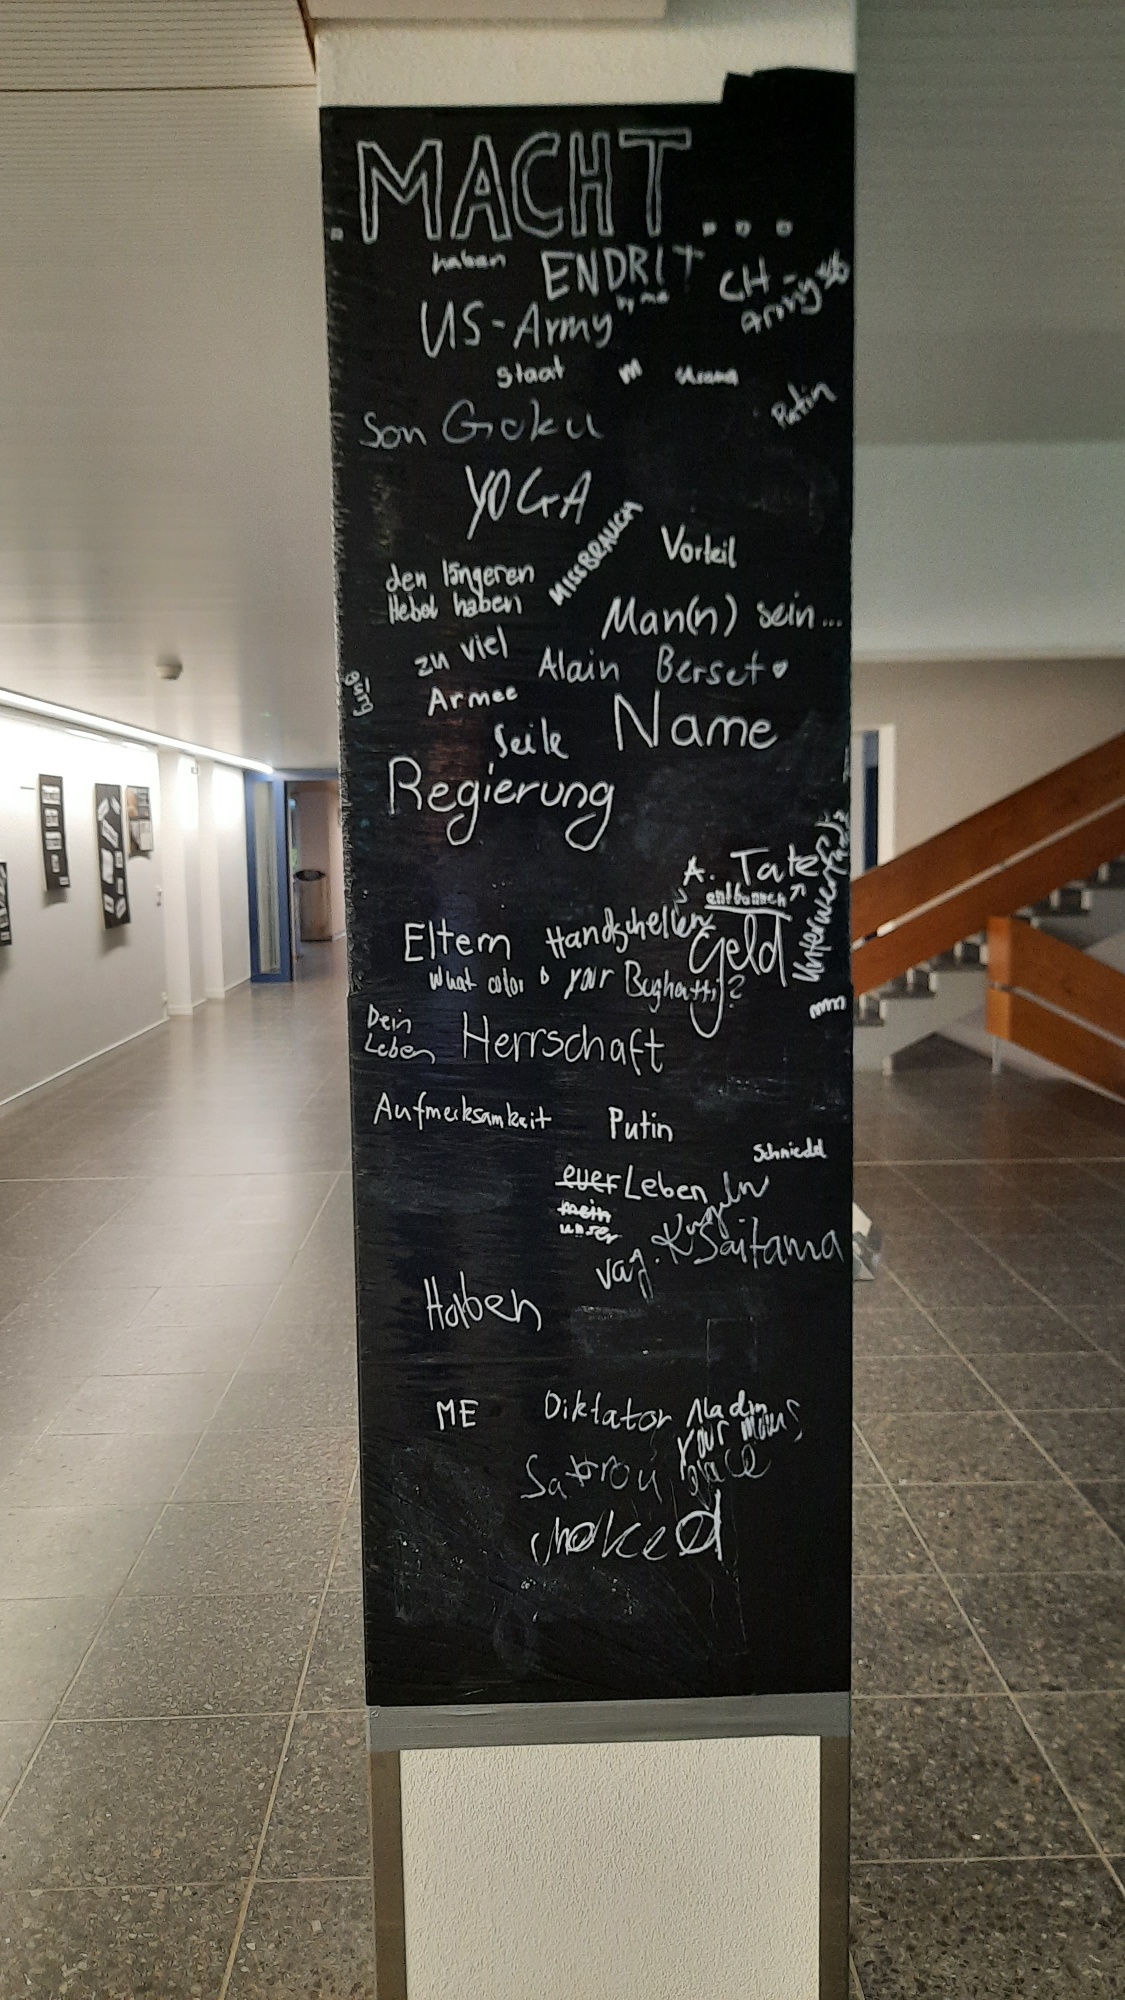 MACHT...
haben
ENDRIT
CH-Army
by me
US-Army
Staat
m
Putin
Son Goku
YOGA
MISSBRAUCH
Vorteil
den längeren
Hebel haben
Man(n) sein...
zu viel
Alain Berset
Armee
Name
Seile
Regierung
A. Tate
entbannen
Eltern
Handschellen
Geld
What color is your Bughatti?
Dein
Leben
Herrschaft
Aufmerksamkeit
Putin
Schniedel
euer Leben
mein
unser
Kugeln
Saitama
vaj.
Haben
ME
Diktator Aladin
your moms
place